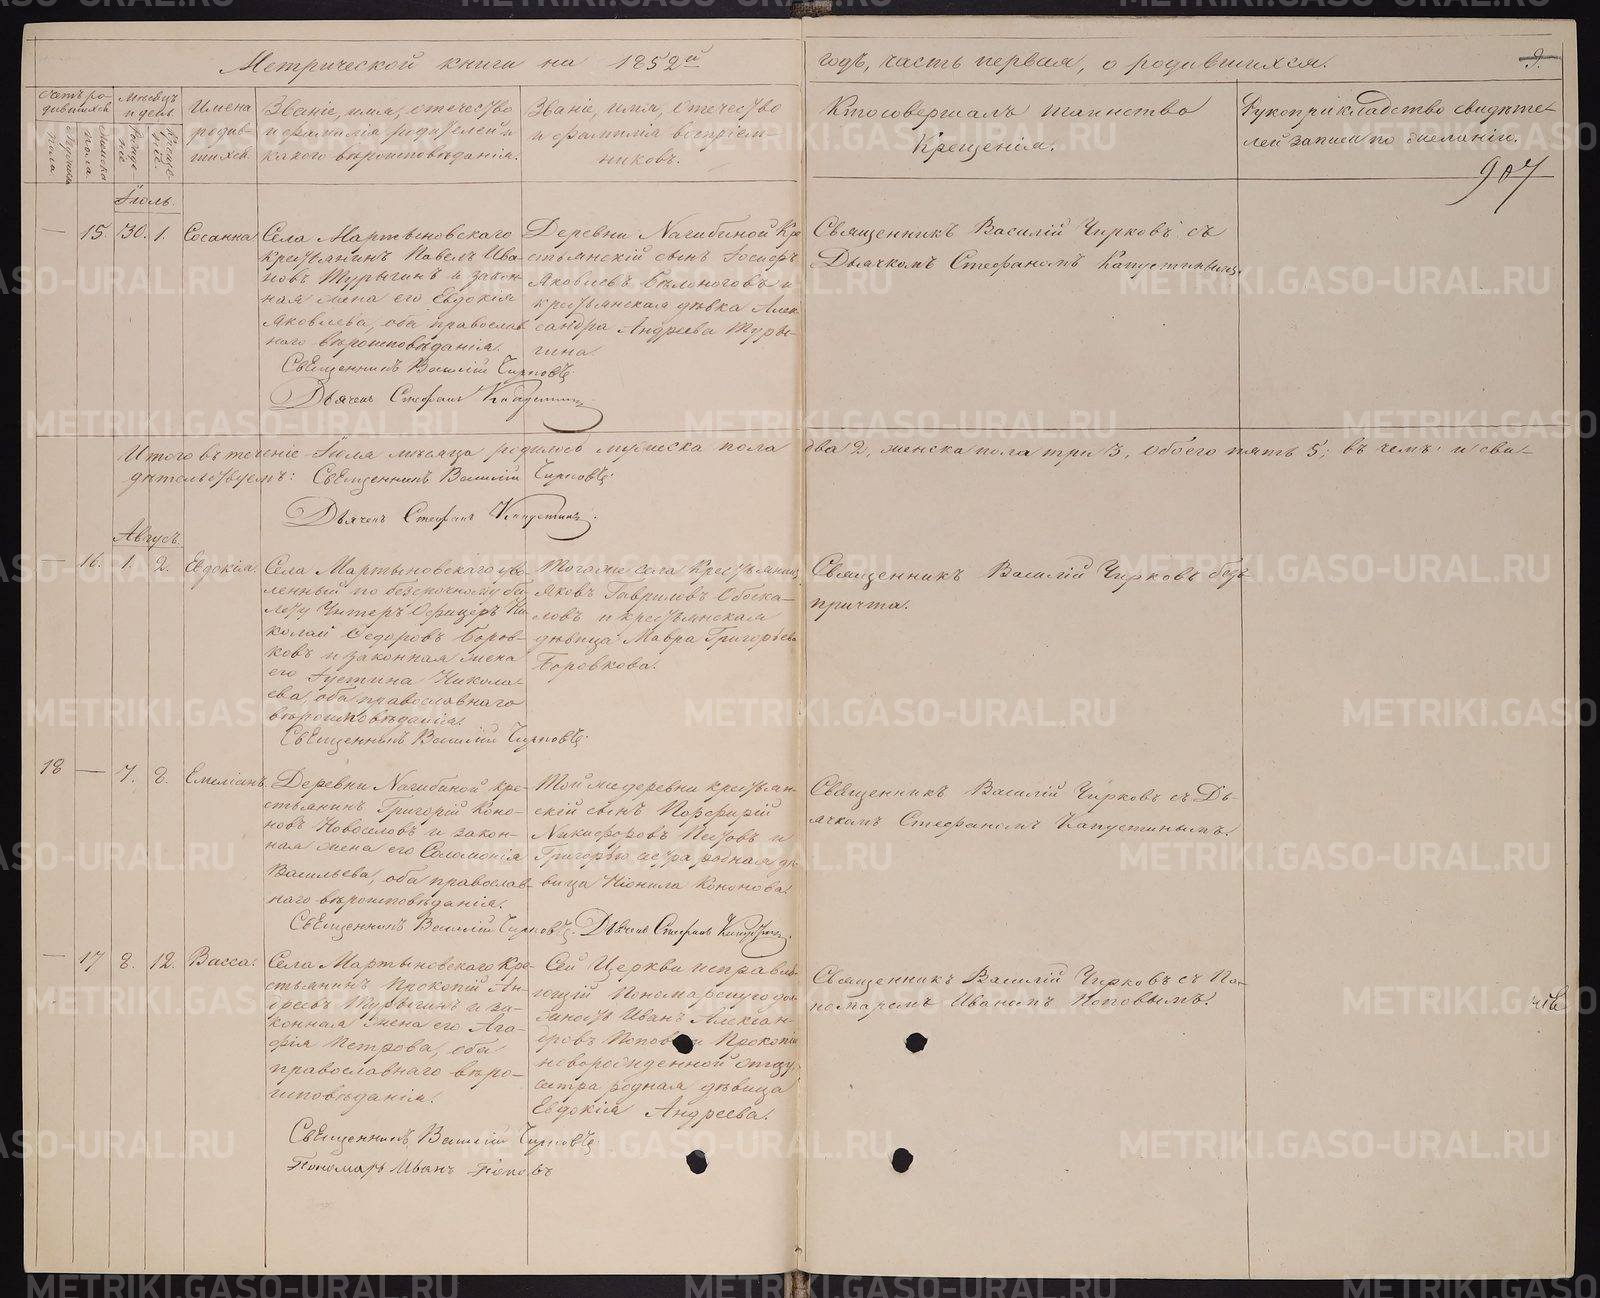 Метрической книги на 1852й годъ, часть первая, о родившихся.
9.
907
Счетъ ро-
дившихся
Мѣсяцъ
и день.
Мужеска
пола.
Женска
пола.
Рожде
нія.
Креще-
нія.
Имена
родив-
шихся.
Званіе, имя, отечество
и фамилія родителей и
какого вѣроисповѣданія.
Званіе, имя, отечество
и фамилія воспріем-
никовъ.
Кто совершалъ таинство
Крещенія.
Рукоприкладство свидѣте-
лей записи по желанію.
Іюль.
— 15. 30. 1. Сосанна
Села Мартыновскаго
крестьянинъ Павелъ Ива
новъ Турыгинъ и закон-
ная жена его Евдокія
Яковлева, оба православ
наго вѣроисповѣданія.
Священникъ Василій Чирковъ
Дьячекъ Стефанъ Капустинъ
Деревни Нагибиной Кре
стьянскій сынъ Іосифъ
Яковлевъ Бѣлоноговъ и
крестьянская дѣвка Алек
сандра Андреева Туры-
гина
Священникъ Василій Чирковъ съ
Дьячкомъ Стефаномъ Капустинымъ
Итого въ теченіе Іюля мѣсяца родилось мужеска пола два 2, женска пола три 3, обоего пять 5; въ чемъ и сви-
дѣтельствуемъ: Священникъ Василій Чирковъ.
Дьячекъ Стефанъ Капустинъ.
Августъ.
— 16. 1. 2. Евдокія.
Села Мартыновскаго уво
ленный по безсрочному би
лету Унтеръ Офицеръ Ни
колай Ѳедоровъ Боров-
ковъ и законная жена
его Іустина Никола-
ева, оба православнаго
вѣроисповѣданія.
Священникъ Василій Чирковъ.
Тогоже села Крестьянинъ
Яковъ Гавриловъ
и крестьянская
дѣвица Мавра Григорьева
Боровкова.
Священникъ Василій Чирковъ безъ
причта.
18 — 7. 8. Емеліанъ.
Деревни Нагибиной кре-
стьянинъ Григорій Коно-
новъ Новоселовъ и закон-
ная жена его Соломонія
Васильева, оба православ-
наго вѣроисповѣданія.
Священникъ Василій Чирковъ. Дьячекъ Стефанъ Капустинъ.
Той же деревни крестьян-
скій сынъ Порфирій
Никифоровъ Пестовъ и
Григорію сестра родная дѣ
вица Неонила Кононова.
Священникъ Василій Чирковъ съ Дь-
ячкомъ Стефаномъ Капустинымъ.
— 17 8. 12. Васса.
Села Мартыновскаго Кре-
стьянинъ Прокопій Ан-
дреевъ Турыгинъ и за-
конная жена его Ага-
фія Петрова, оба
православнаго вѣро-
исповѣданія.
Священникъ Василій Чирковъ
Пономарь Иванъ Поповъ
Сей Церкви исправля-
ющій Пономарскую дол
жность Иванъ Алексан-
дровъ Поповъ и Прокопію
новорожденной отцу
сестра родная дѣвица
Евдокія Андреева.
Священникъ Василій Чирковъ съ По-
номаремъ Иваномъ Поповымъ.
METRIKI.GASO-URAL.RU